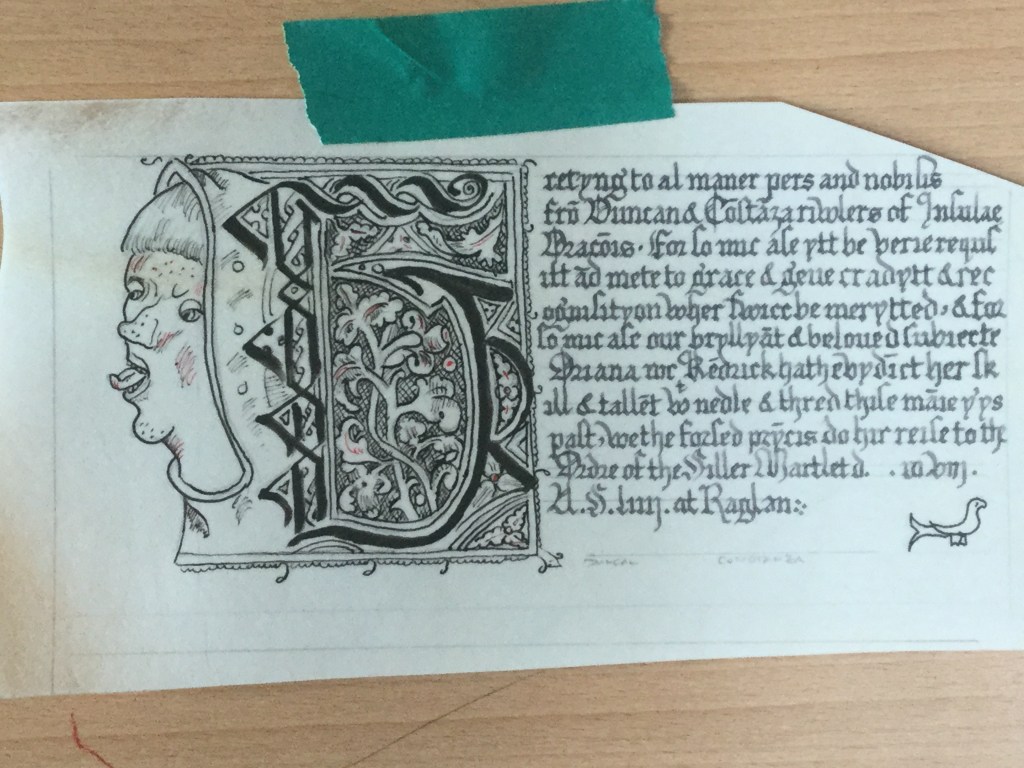 G
retyng to al maner pers and nobilis
frō Duncan & Cōstāza riwlers of Insulae
Dracōis. For so mic ase ytt be verie requis
itt ād mete to grace & geue cradytt & rec
ognisityon wher hit be merytted, & for
so mic ase our pryllyāt & beloued subiecte
Oriana mc Kēdrick hath evydīct her sk
ill & tallēt w nedle & thred thise mānie y'ps
past, we the forsed prȳcis do hir reise to the
Ordre of the Siller Martlet d.
A.S. liiij. at Raglan
DUNCAN CONSTANZA